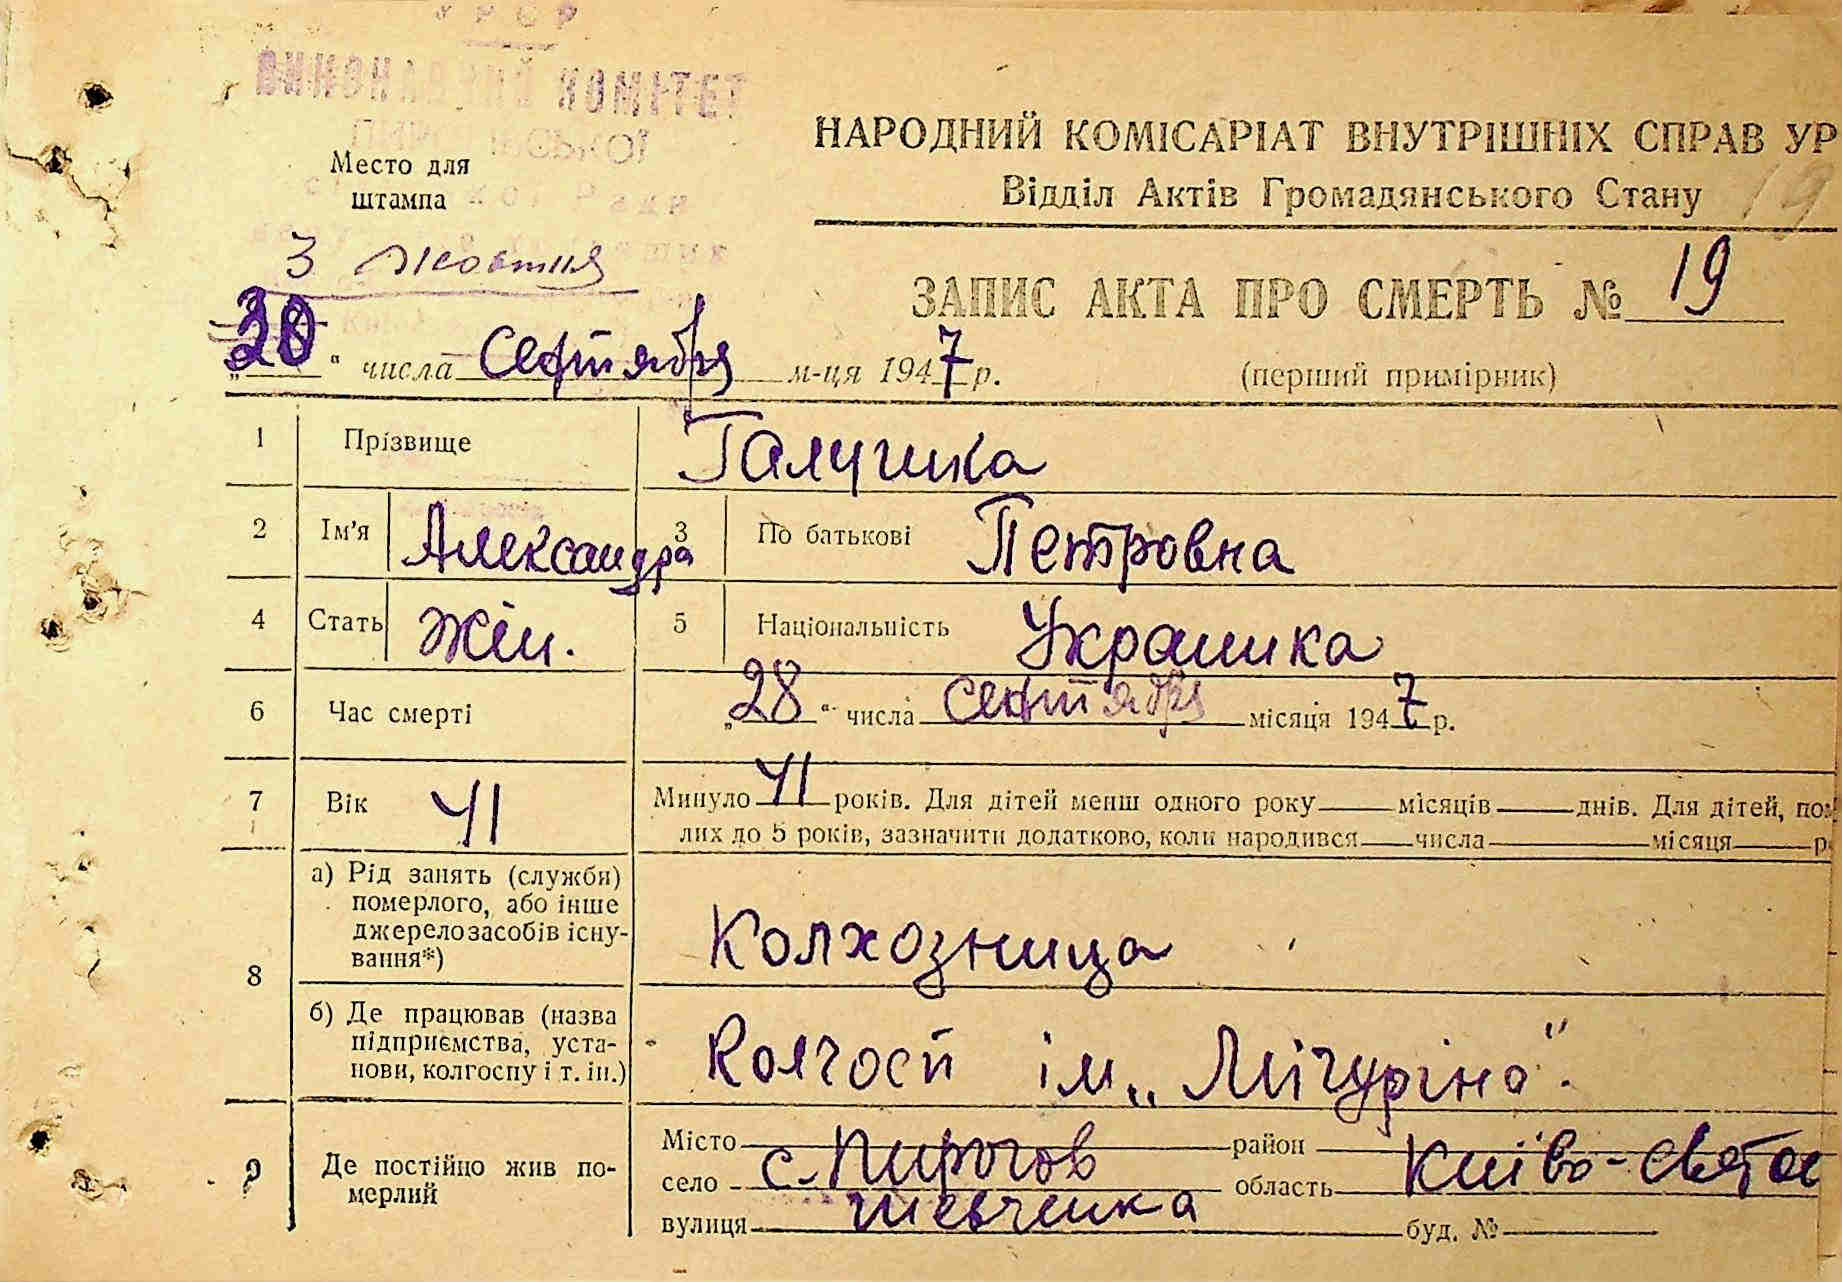 УРСР
ВИКОНАВЧИЙ КОМІТЕТ
Место для
штампа
НАРОДНИЙ КОМІСАРІАТ ВНУТРІШНІХ СПРАВ УР
Відділ Актів Громадянського Стану
19
3 жовтня
ЗАПИС АКТА ПРО СМЕРТЬ № 19
„30“ числа Сентября м-ця 1947 р.
(перший примірник)
1 Прізвище Галушка
2 Ім'я Александра 3 По батькові Петровна
4 Стать Жін. 5 Національність Украинка
6 Час смерті „28“ числа Сентября місяця 1947 р.
7 Вік 41 Минуло 41 років. Для дітей менш одного року місяців днів. Для дітей, пом
лих до 5 років, зазначити додатково, коли народився числа місяця р.
8 а) Рід занять (служби)
померлого, або інше
джерело засобів існу-
вання*)
Колхозница
б) Де працював (назва
підприємства, уста-
нови, колгоспу і т. ін.)
Колгосп ім. „Мічуріна".
9 Де постійно жив по-
мерлий
Місто район
село с. Пирогов область Київо-Свято
вулиця Шевченка буд. №